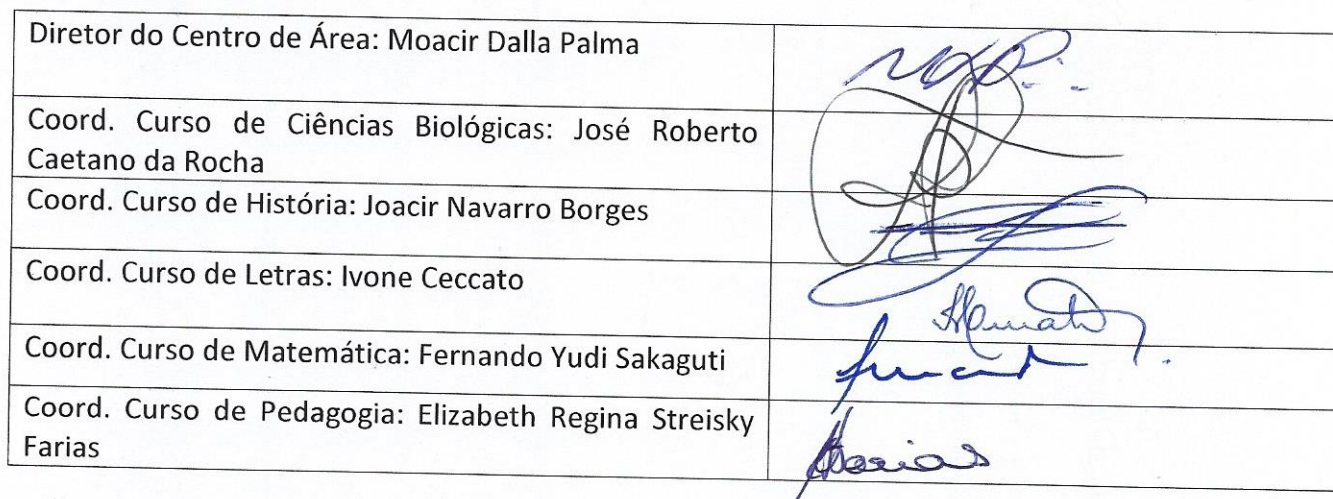 Diretor do Centro de Área: Moacir Dalla Palma
Coord. Curso de Ciências Biológicas: José Roberto
Caetano da Rocha
Coord. Curso de História: Joacir Navarro Borges
Coord. Curso de Letras: Ivone Ceccato
Coord. Curso de Matemática: Fernando Yudi Sakaguti
Coord. Curso de Pedagogia: Elizabeth Regina Streisky
Farias